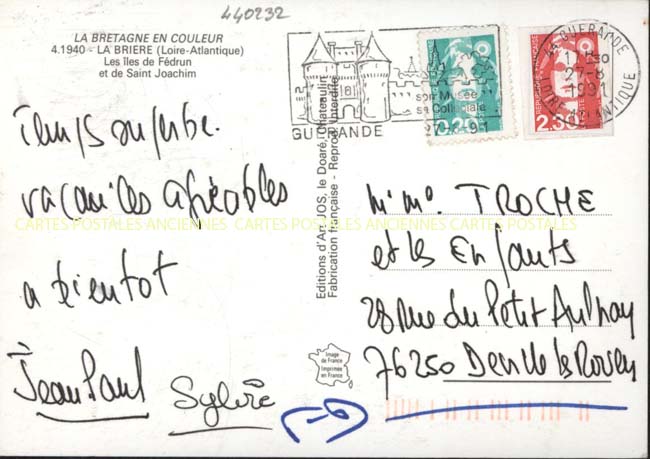 440232
LA BRETAGNE EN COULEUR
4.1940 - LA BRIERE (Loire-Atlantique)
Les îles de Fédrun
et de Saint Joachim
Temps superbe.
vacances agréables
a bientot
Jean Paul
Sylvie
GUERANDE
son Musée
sa Collégiale
27-8-91
0,20
2,30
REPUBLIQUE FRANÇAISE
44 GUERANDE
27-8
1991
LOIRE ATLANTIQUE
Editions d'Art JOS, le Doaré, Chateaulin
Fabrication française - Reprod. interdite
Image
de France
Imprimée
en France
M. Mme TROCHE
et les Enfants
28 rue du Petit Aulnay
76250 Deville les Rouen
CARTES POSTALES ANCIENNES CARTES POSTALES ANCIENNES CARTES POSTALES